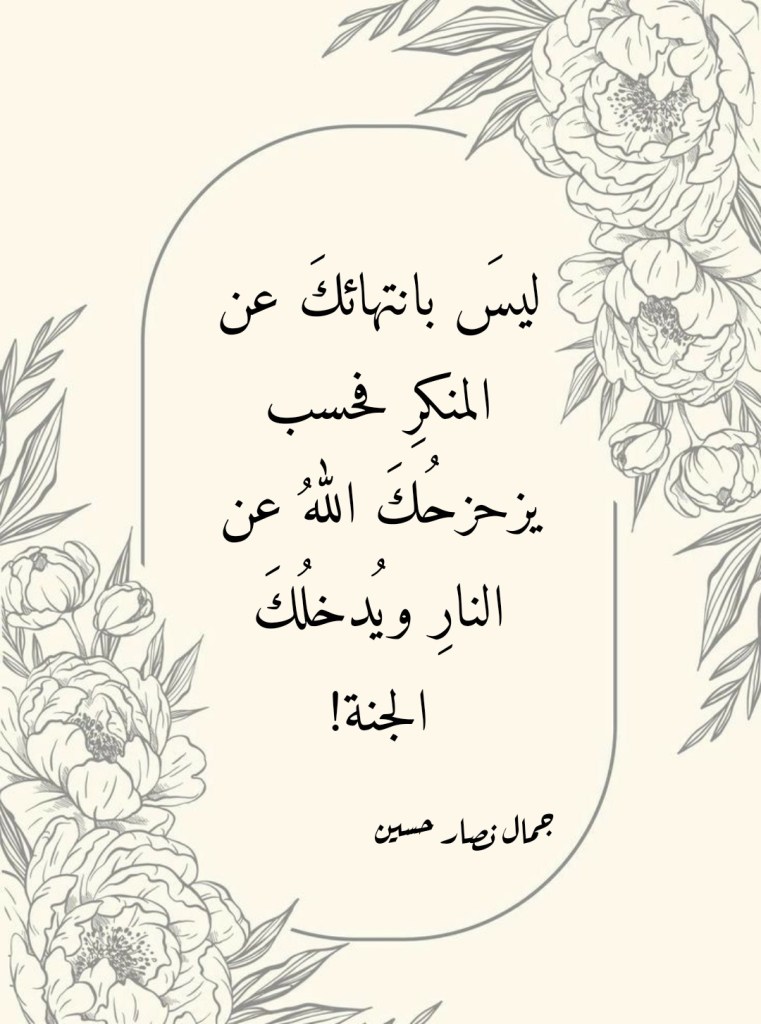 ليسَ بانتهائكَ عن
المنكرِ فحسب
يزحزحُكَ اللهُ عن
النارِ ويُدخلُكَ
الجنة!
جمال نصار حسين